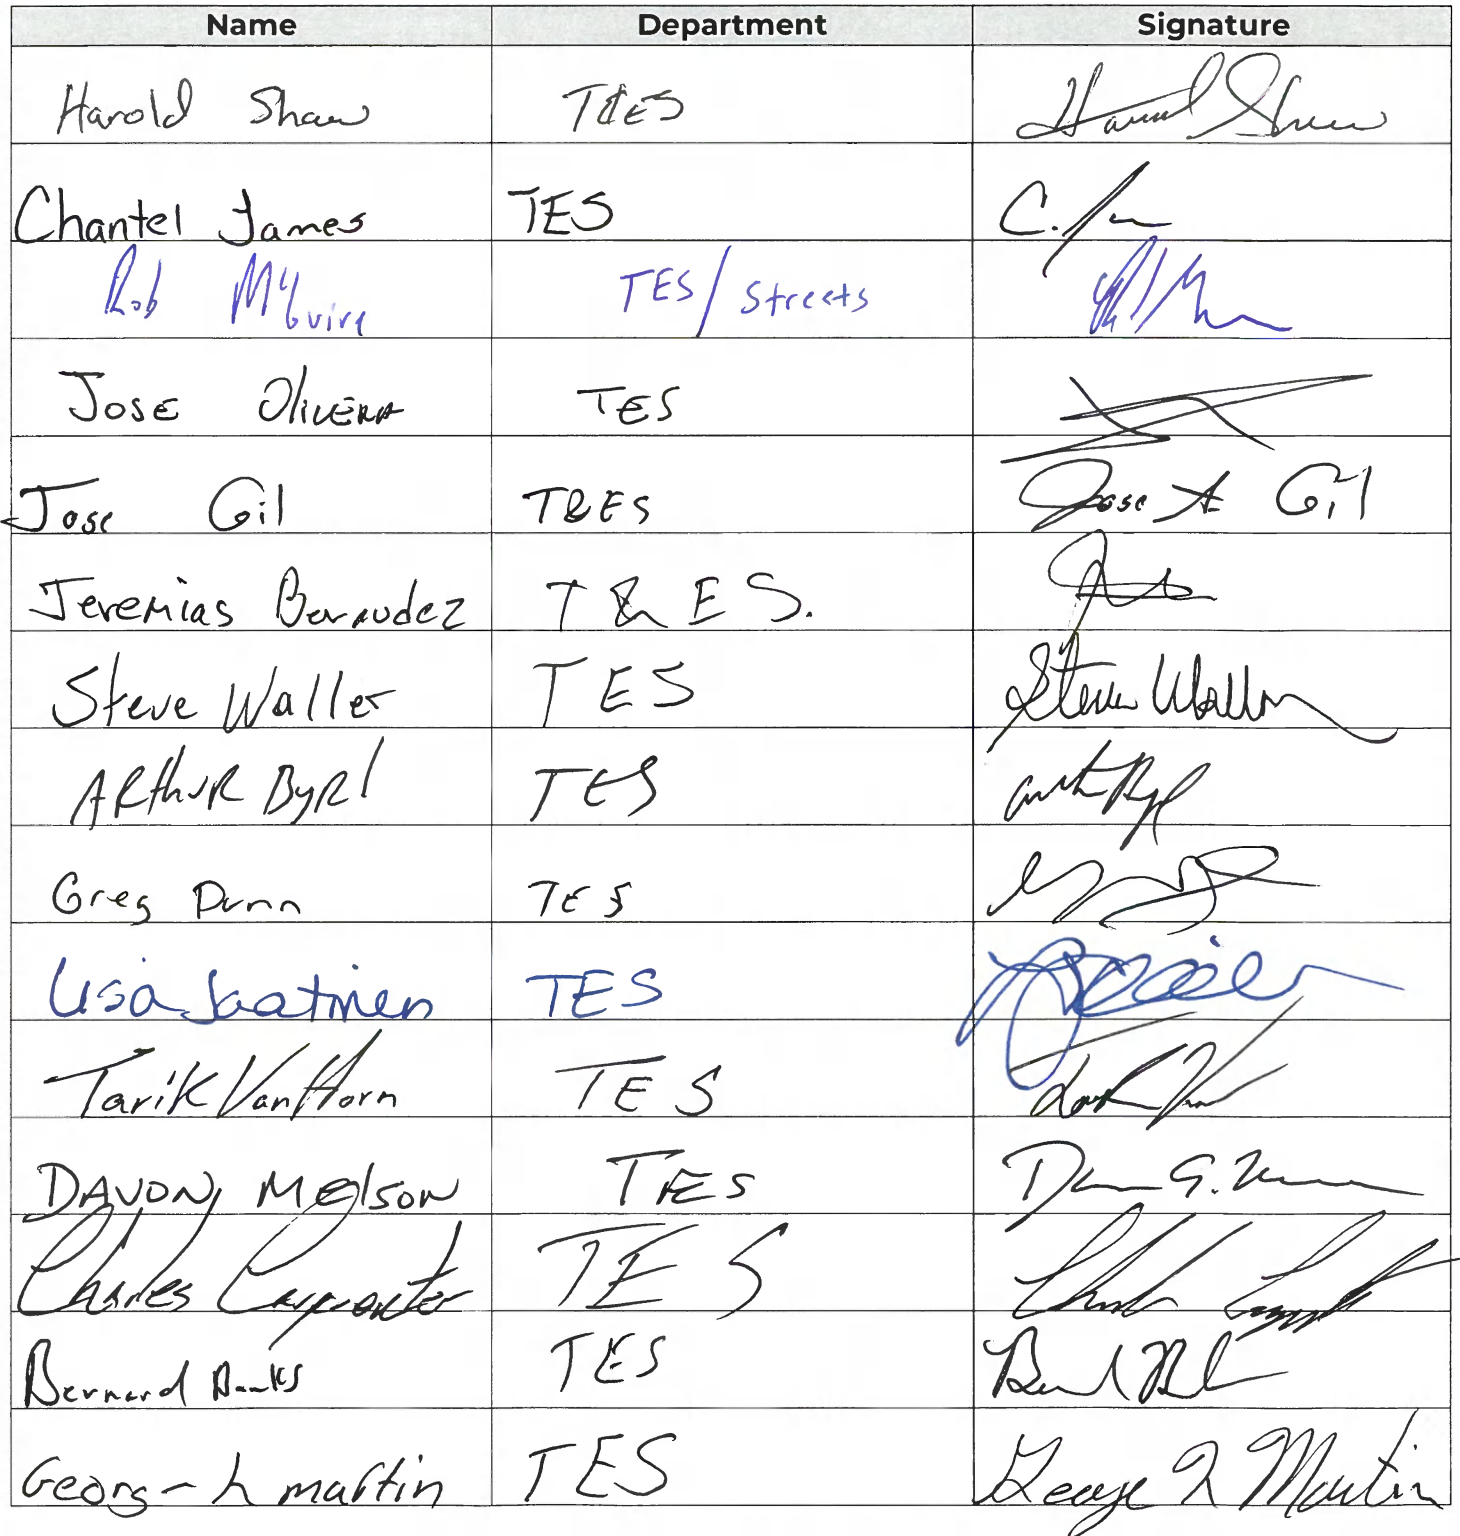 Name Department Signature
Harold Shaw T&ES Harold Shaw
Chantel James TES C.
Rob McGuire TES/Streets
Jose Olivera TES
Jose Gil T&ES Jose A Gil
Jeremias Bermudez T & E S.
Steve Waller TES Steve Waller
ARthuR ByRl TES
Greg Dunn TES
Lisa Jaatinen TES
Tarik VanHorn TES
DAVON MElSON TES
Charles Carpenter TES
Bernard Banks TES
Georg- L martin TES George L Martin